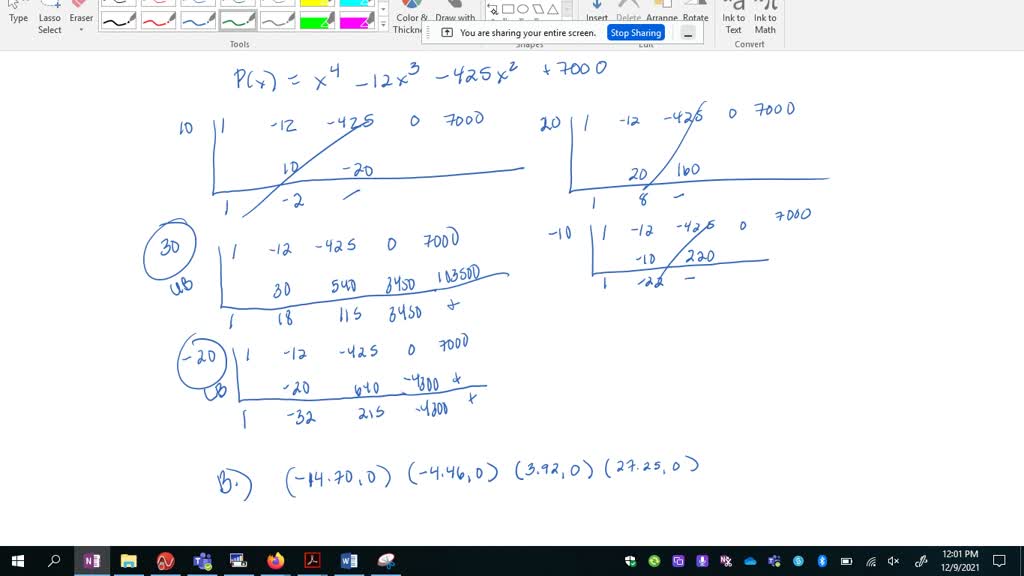 Type
Lasso Select
Eraser
Color & Thickn
Draw with
Insert
Delete
Arrange
Rotate
Ink to Text
Ink to Math
You are sharing your entire screen.
Stop Sharing
Tools
Shapes
Edit
Convert
P(x) = x^4 - 12x^3 - 425x^2 + 7000
10 | 1 -12 -425 0 7000
10 -20
1 -2 -
20 | 1 -12 -425 0 7000
20 160
1 8 -
30 | 1 -12 -425 0 7000
UB 30 540 3450 103500
1 18 115 3450 +
-10 | 1 -12 -425 0 7000
-10 220
1 -22 -
-20 | 1 -12 -425 0 7000
LB -20 640 -4300 +
1 -32 215 -4300 +
B.) (-14.70, 0) (-4.46, 0) (3.92, 0) (27.25, 0)
12:01 PM
12/9/2021